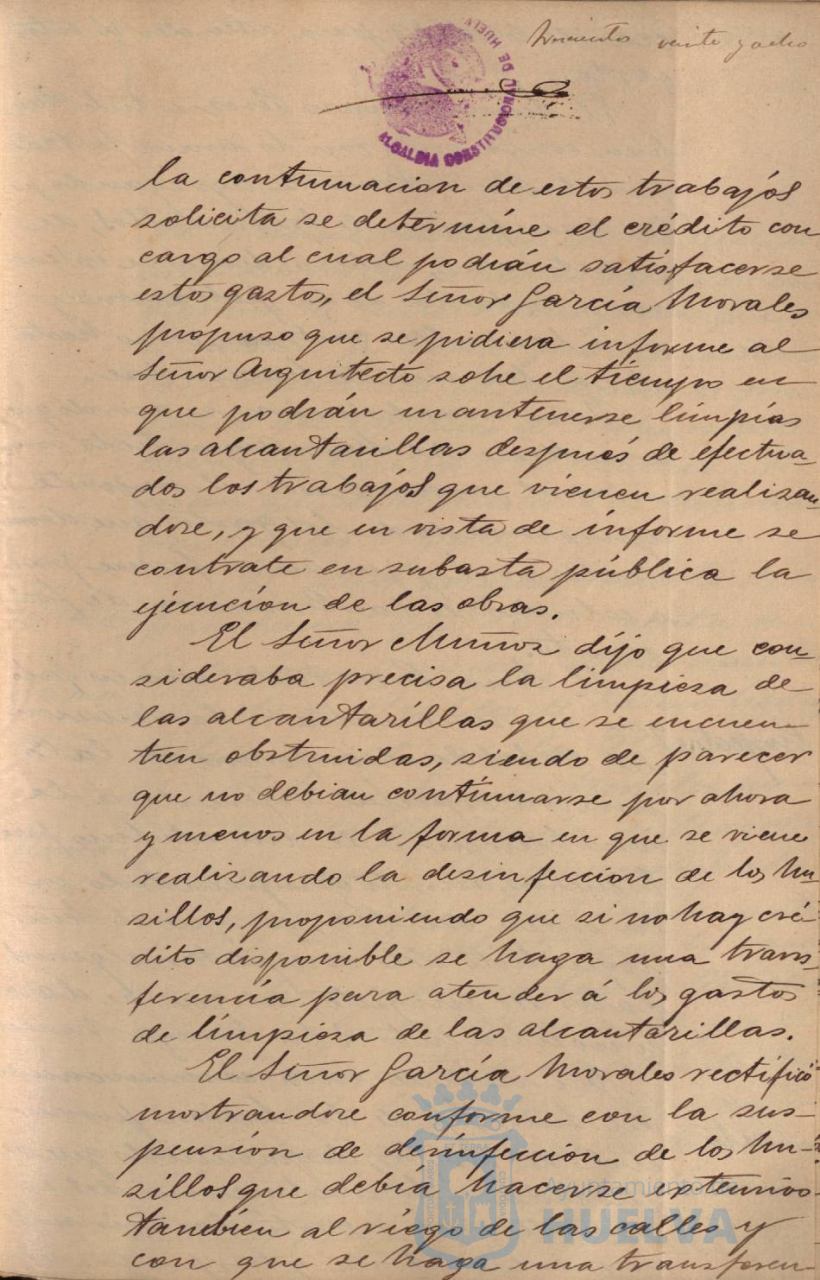 veinte y ocho
ALCALDIA CONSTITUCIONAL DE HUELV
la continuacion de estos trabajos
solicita se determine el crédito con
cargo al cual podrán satisfacerse
estos gastos, el Señor García Morales
propuso que se pidiera informe al
Señor Arquitecto sobre el tiempo en
que podrán mantenerse limpias
las alcantarillas después de efectua-
dos los trabajos que vienen realizan-
dose, y que en vista de informe se
contrate en subasta pública la
ejecución de las obras.
El Señor Muñoz dijo que con-
sideraba precisa la limpieza de
las alcantarillas que se encuen-
tren obstruidas, siendo de parecer
que no debian continuarse por ahora
y menos en la forma en que se viene
realizando la desinfeccion de los hu-
sillos, proponiendo que si no hay cré-
dito disponible se haga una trans-
ferencia para atender á los gastos
de limpieza de las alcantarillas.
El Señor García Morales rectificó
mostrandose conforme con la sus-
pensión de desinfeccion de los hu-
sillos que debía hacerse extensivo
tambien al riego de las calles y
con que se haga una transferen-
Ayuntamiento de
HUELVA